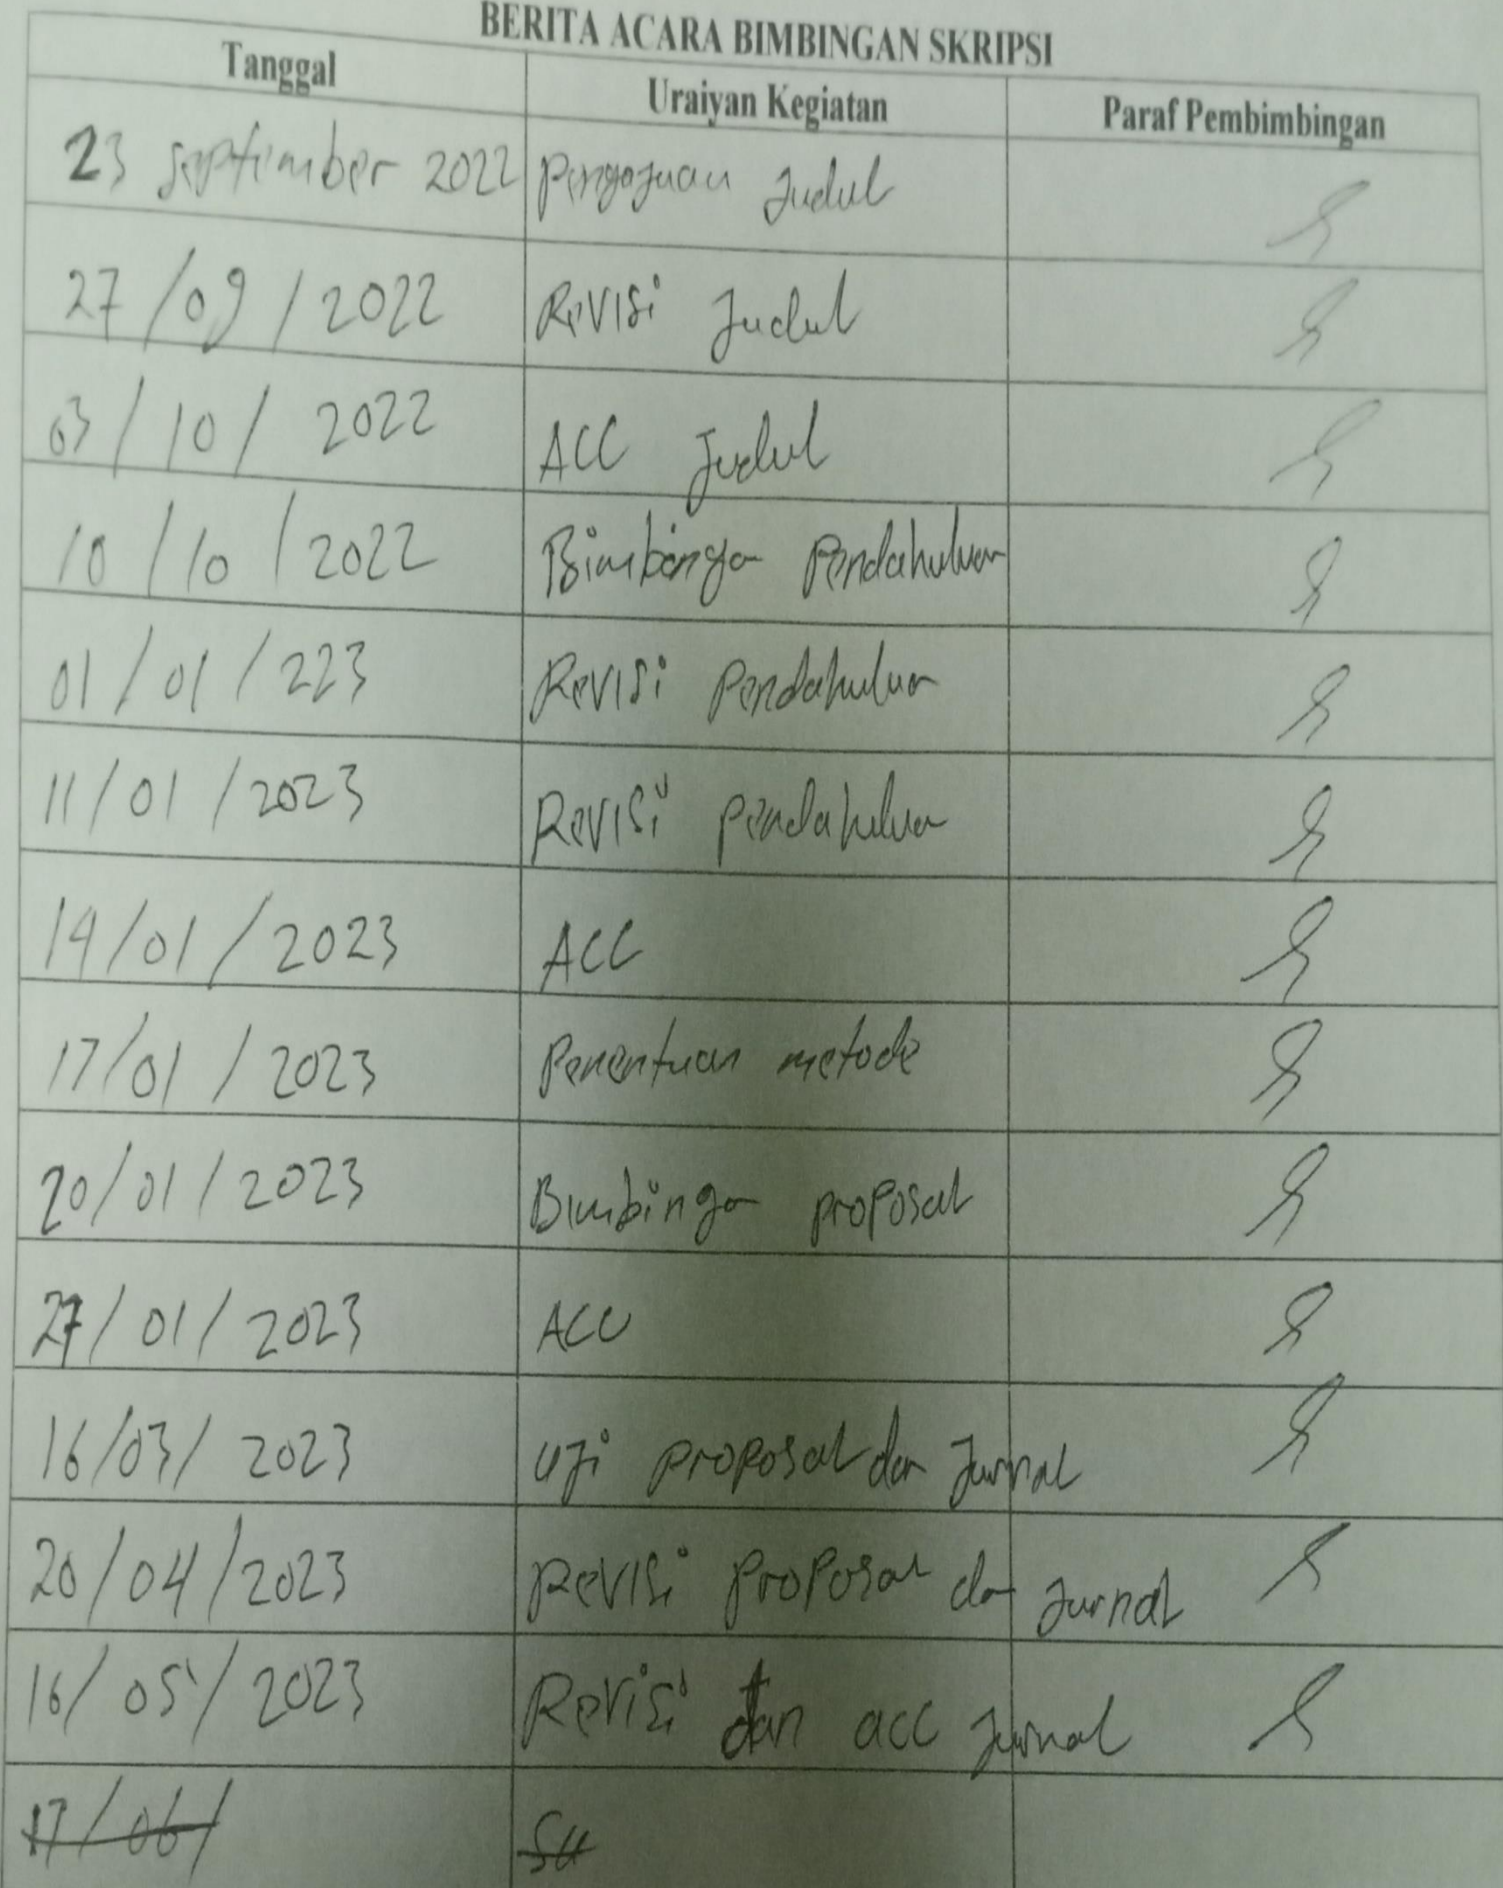 BERITA ACARA BIMBINGAN SKRIPSI
Tanggal Uraiyan Kegiatan Paraf Pembimbingan
23 September 2022 Pengajuan Judul
27/09/2022 Revisi Judul
03/10/2022 ACC Judul
10/10/2022 Bimbinga Pendahuluan
01/01/223 Revisi Pendahuluan
11/01/2023 Revisi pendahuluan
14/01/2023 ACC
17/01/2023 Penentuan metode
20/01/2023 Bimbingan proposal
27/01/2023 ACC
16/03/2023 uji proposal dan Jurnal
20/04/2023 Revisi proposal dan Jurnal
16/05/2023 Revisi dan acc Jurnal
17/06/ Su